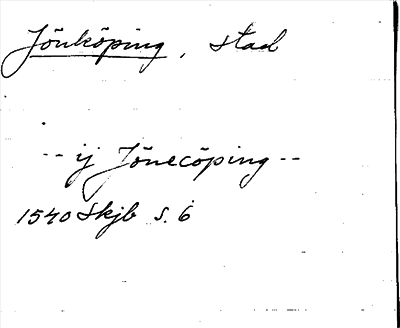 Jönköping, stad
-- ij Jönecöping --
1540 Skjb s. 6